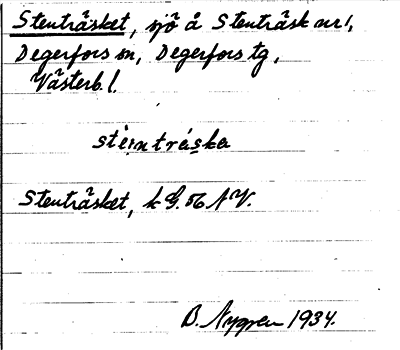 Stenträsket, sjö å Stenträsk nr 1,
Degerfors sn, Degerfors tg,
Västerb. l.
stèintráska
Stenträsket, k G. 56 NV.
B. Nygren 1934.